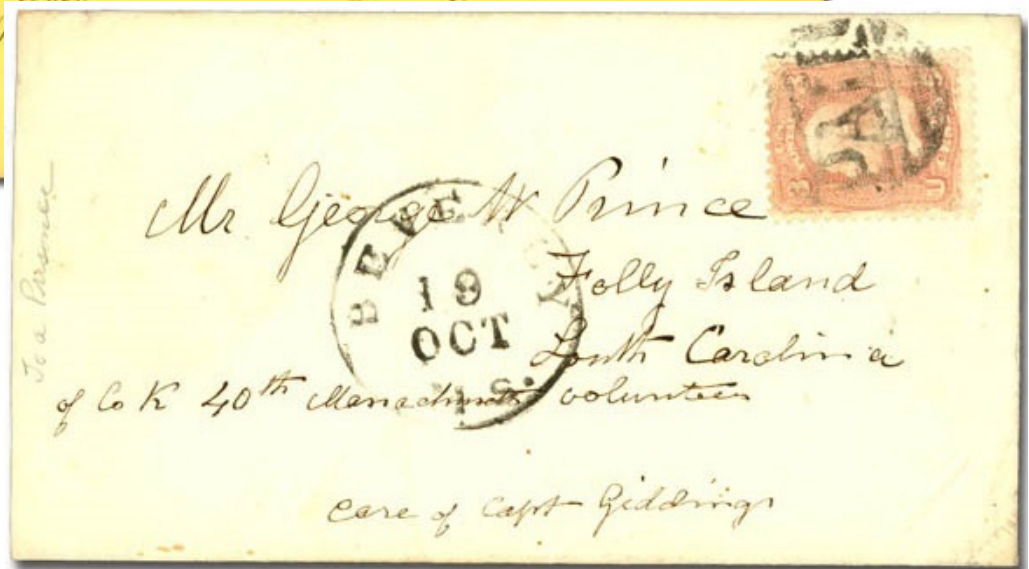 Mr George W Prince
Folly Island
South Carolina
of Co K 40th Massachusetts volunteers
care of Capt Giddings
BEVE
19
OCT
PAI
3
U
To a